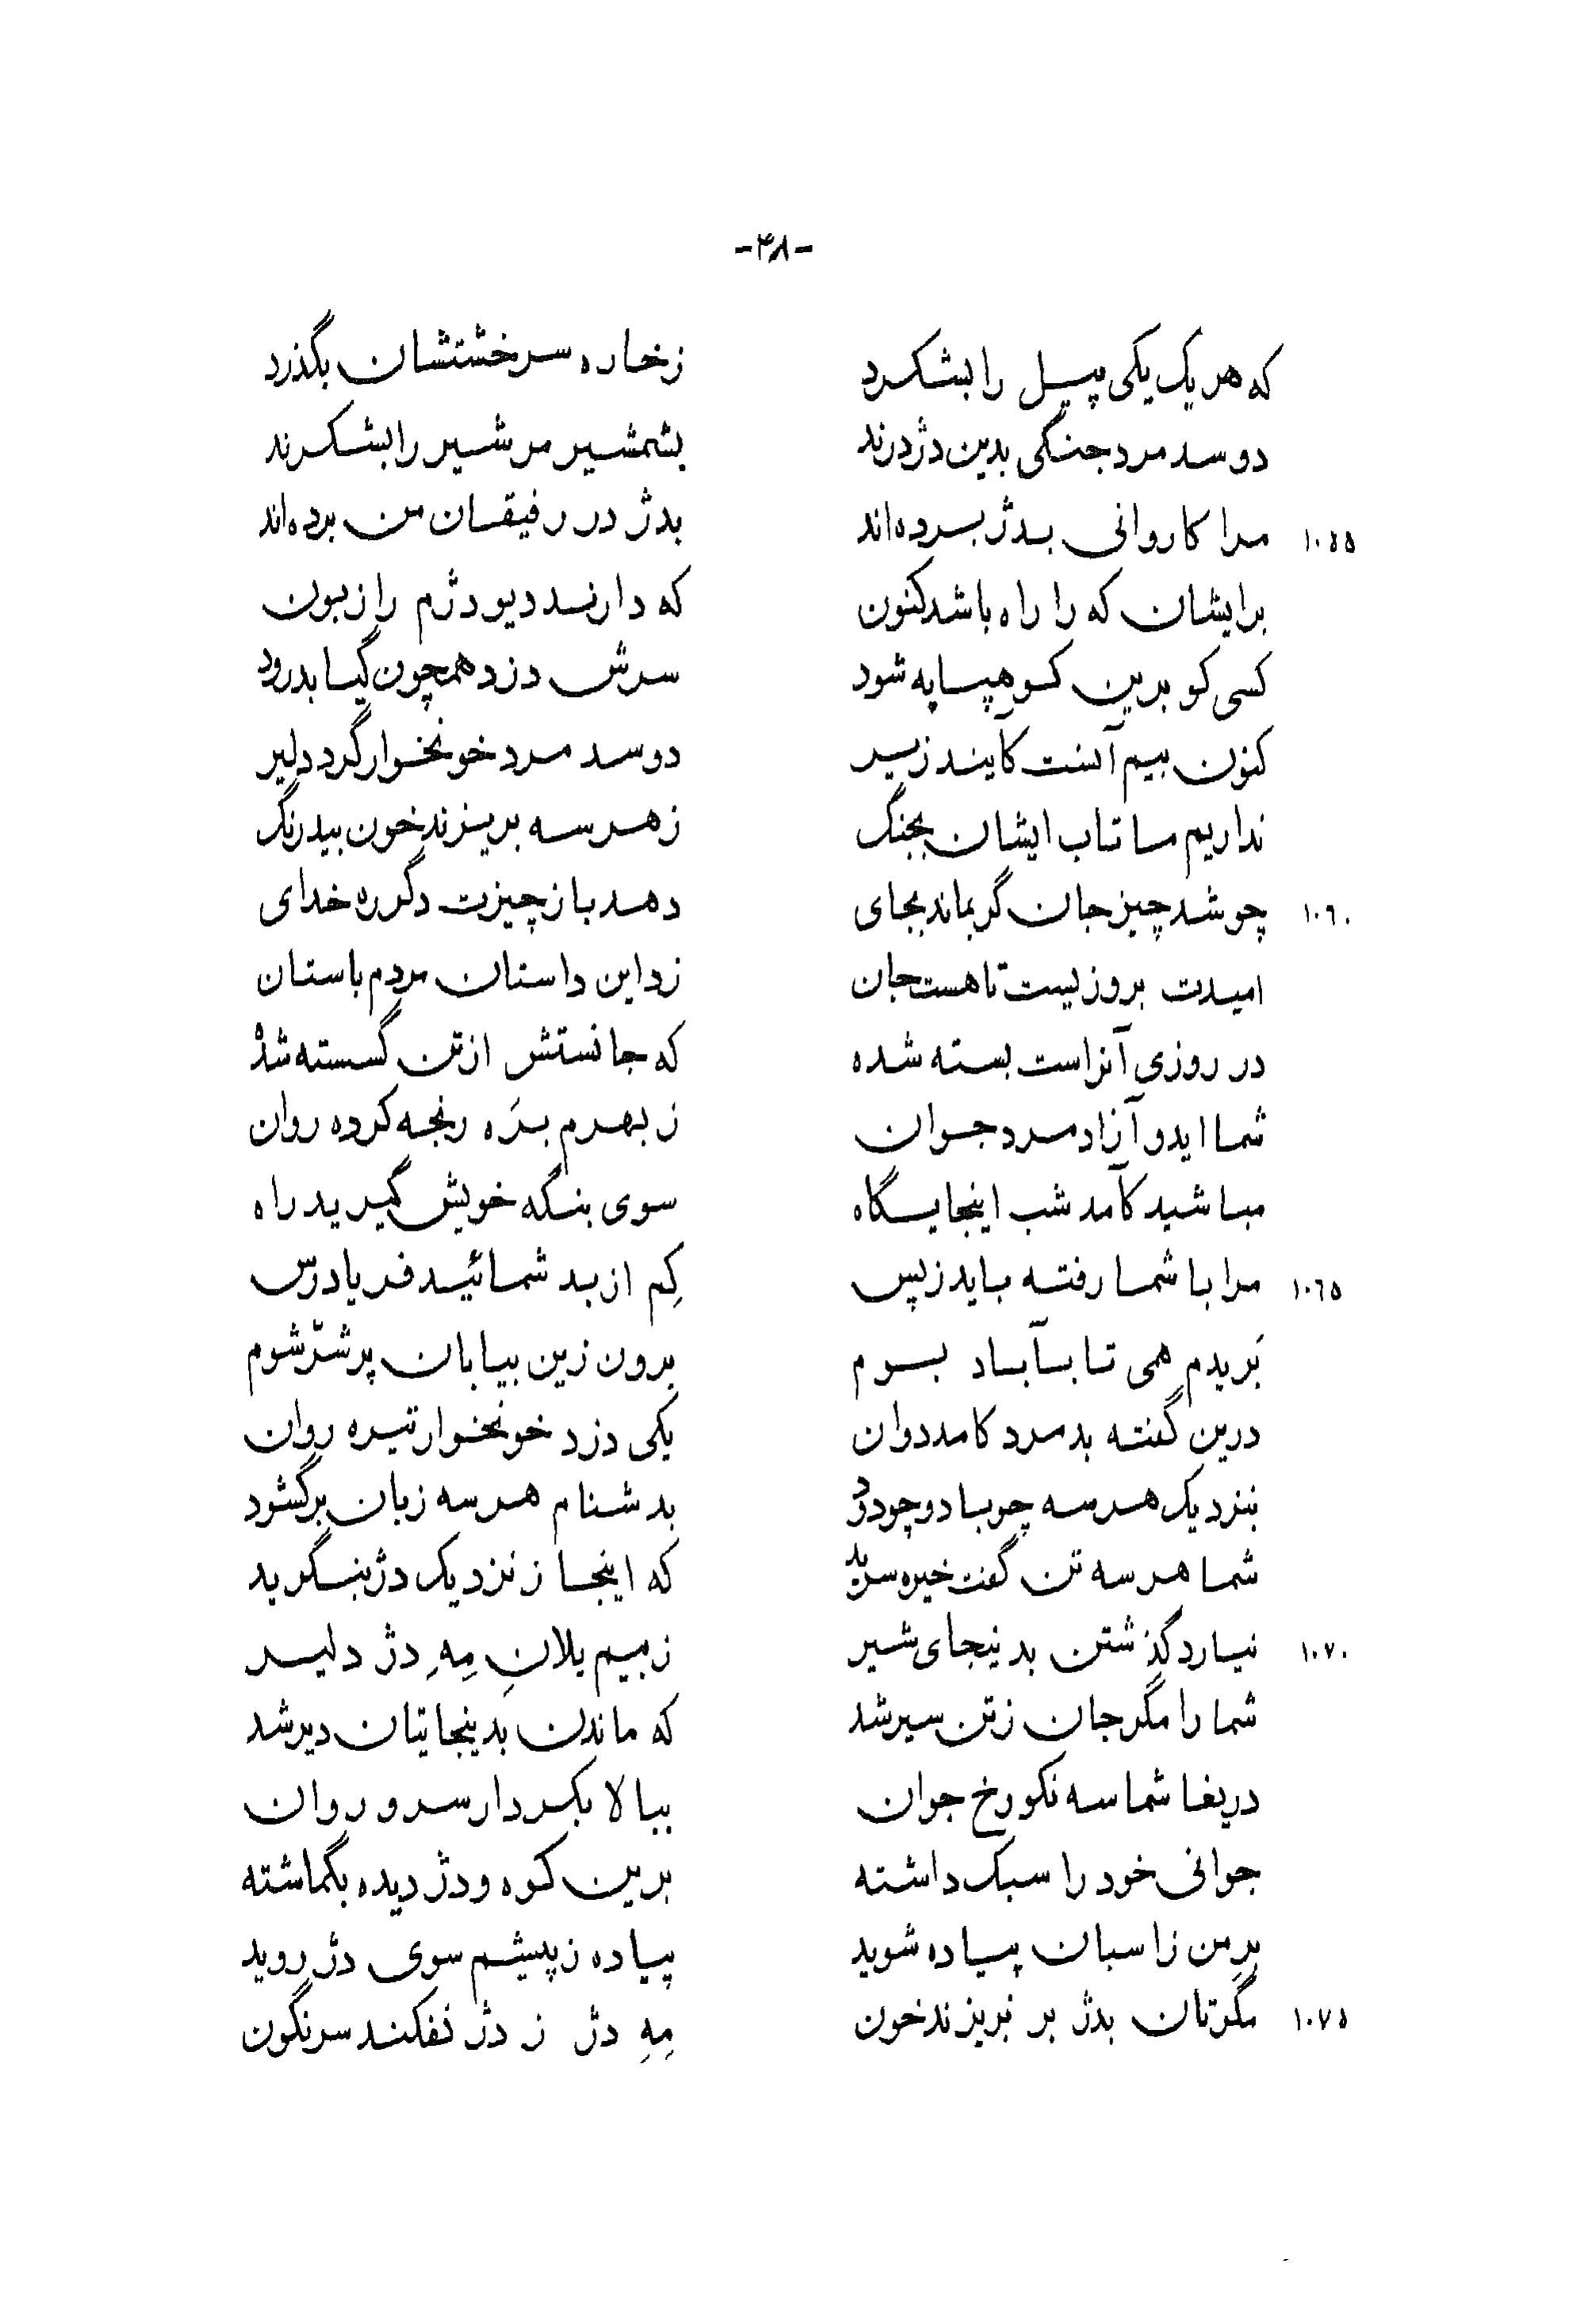 -۴۸-
که هر یک یکی پیل را بشکرد    زخاره سرخشتشان بگذرد
دوسد مرد جنگی بدین دژ درند    بشمشیر مر شیر را بشکرند
۱۰۵۵ مرا کاروانی بدژ برده‌اند    بدژ در رفیقان من برده‌اند
برایشان که را راه باشد کنون    که دارند دیو دژم را زبون
کسی کو برین کوهپایه شود    سرش دزد همچون گیا بدرود
کنون بیم آنست کآیند زیر    دوسد مرد خونخوار گرد دلیر
نداریم ما تاب ایشان بجنگ    زهر سه بریزند خون بیدرنگ
۱۰۶۰ چو شد چیز جان گر بماند بجای    دهد باز چیزت دگرره خدای
امیدت بروزیست تا هست جان    زد این داستان مردم باستان
در روزی آنراست بسته شده    که جانستش از تن گسسته شدْ
شما ایدو آزاد مرد جوان    ز بهرم برَه رنجه کرده روان
مباشید کآمد شب اینجایگاه    سوی بنگه خویش گیرید راه
۱۰۶۵ مرا با شما رفته باید زپس    کِم از بد شمائید فریادرس
بَریدم همی تا بآباد بوم    برون زین بیابان پر شرّ شوم
درین گفته بد مرد کامد دوان    یکی دزد خونخوار تیره روان
بنزدیک هر سه چو باد و چو دود    بدشنام هر سه زبان برگشود
شما هر سه تن گفت خیره سرید    که اینجا ز نزدیک دژ بنگرید
۱۰۷۰ نیارد گذشتن بدینجای شیر    ز بیم یلانِ مِهِ دژ دلیر
شما را مگر جان ز تن سیر شد    که ماندن بدینجایتان دیر شد
دریغا شما سه نکو رخ جوان    ببالا بکردار سرو روان
جوانی خود را سبک داشته    برین کوه و دژ دیده بگماشته
برِ من ز اسبان پیاده شوید    پیاده ز پیشم سوی دژ روید
۱۰۷۵ مگرتان بدژ بر نریزند خون    مِهِ دژ ز دژ نفکند سرنگون